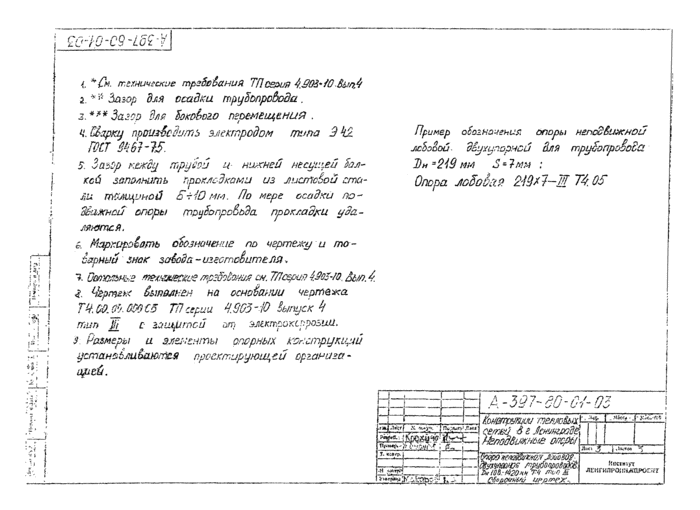 А-397-80-01-03
1. * См. технические требования ТП серия 4.903-10. Вып.4
2. ** Зазор для осадки трубопровода.
3. *** Зазор для бокового перемещения.
4. Сварку производить электродом типа Э42
ГОСТ 9467-75.
5. Зазор между трубой и нижней несущей бал-
кой заполнить прокладками из листовой ста-
ли толщиной 5÷10 мм. По мере осадки по-
движной опоры трубопровода прокладки уда-
ляются.
6. Маркировать обозначение по чертежу и то-
варный знак завода-изготовителя.
7. Остальные технические требования см. ТП серия 4.903-10. Вып. 4.
8. Чертеж выполнен на основании чертежа
Т4.00.00.000СБ ТП серии 4.903-10 выпуск 4
тип III с защитой от электрокоррозии.
9. Размеры и элементы опорных конструкций
устанавливаются проектирующей организа-
цией.
Пример обозначения опоры неподвижной
лобовой двухупорной для трубопровода
Dн=219 мм S=7мм :
Опора лобовая 219×7-III Т4.05
А-397-80-01-03
Конструкции тепловых
сетей в г. Ленинграде
Неподвижные опоры
Лист 3 Листов 3
Опора неподвижная лобовая
двухупорная трубопроводов
Сборочный чертеж.
Институт
ЛЕНГИПРОИНЖПРОЕКТ